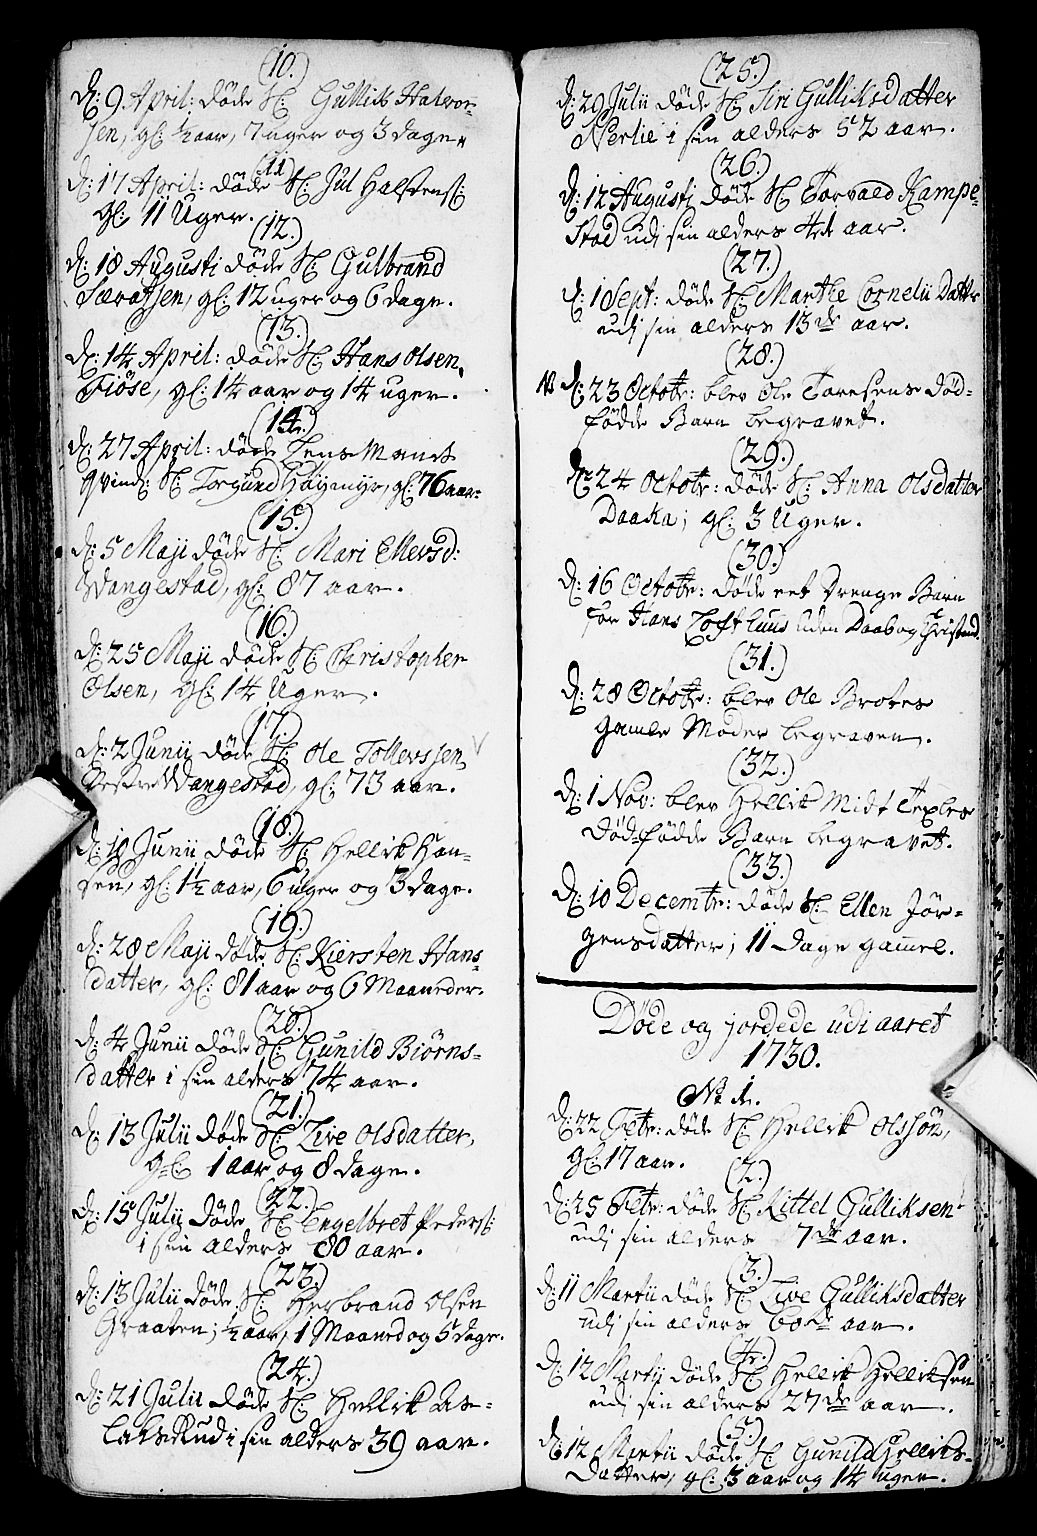 (10.)
D: 9. April: døde S: Gullick Halvor-
sen, gl: ½ aar, 7 uger og 3 dage.
(11)
D: 17 April: døde S: Jul Halstens:
gl: 11 Uger.
(12.)
D: 18 Augusti døde S: Gulbrand
gl: 12 uger og 6 dage.
(13.)
D: 14 April: døde S: Hans Olsen
Fiöse, gl: 14 aar og 14 uger.
(14.)
D: 27 April: døde Lens Mands
qvinde S: Torgund Höymyr, gl: 76 aar.
(15.)
D: 5 Maji døde S: Mari Ellevsd:
Wangestad, gl: 87 aar.
(16.)
D: 25 Maji døde S: Christopher
Olsen, gl: 14 Uger.
(17.)
D: 2 Junii døde S: Ole Tollevssen
Westre Wangestad, gl: 73 aar.
(18.)
D: 19 Junii døde S: Hellik Han-
sen, gl: 1½ aar, 6 uger og 3 dage.
(19.)
D: 28 Maji døde S: Kiersten Hans-
datter, gl: 81 aar og 6 Maaneder.
(20.)
D: 4 Junii døde S: Gunild Biörns-
datter i sin alders 74 aar.
(21.)
D: 13 Julii døde S: Live Olsdatter,
gl: 1 aar og 8 dage.
(22.)
D: 15 Julii døde S: Engelbret Peders:
i sin alders 80 aar.
(23.)
D: 13 Julii døde S: Herbrand Olsen
Graaten; ½ aar, 1 Maaned og 5 dage.
(24.)
D: 21 Julii døde S: Hellik As-
laksRud i sin alders 39 aar.
(25.)
D: 29 Julii døde S: Siri Gulliksdatter
Nerlie i sin alders 52 aar.
(26.)
D: 12 Augusti døde S: Torvald Kampe-
stad udi sin alders 4de aar.
(27.)
D: 1 Sept: døde S: Marthe Cornelii Datter
udi sin alders 13de aar.
(28.)
N D: 23 Octobr: blev Ole Toresens død-
födde Barn begravet.
(29.)
D: 24 Octobr: døde S: Anna Olsdatter
Daaka; gl: 3 Uger.
(30.)
D: 16 Octobr: døde eet Drenge Barn
for Hans Lofthuus uden Daab og Christend.
(31.)
D: 28 Octobr: blev Ole Brotes
gamle Moder begraven.
(32.)
D: 1 Nov: blev Hellik Midt Texles
Död-födde Barn begravet.
(33.)
D: 10 Decembr: døde S: Ellen Jör-
gensdatter; 11 dage gammel.
Døde og jordede udi aaret
1730.
No 1.
D: 22 Febr: døde S: Hellik Olssön,
gl: 17 aar.
(2.)
D: 25 Febr: døde S: Kittel Gulliksen
udi sin alders 7de aar.
(3.)
D: 11 Martii døde S: Live Gulliksdatter
udi sin alders 60de aar.
(4.)
D: 12 Martii døde S: Hellik Helliksen
udi sin alders 27de aar.
(5.)
D: 12 Martii døde S: Gunild Helliks-
datter, gl: 3 aar og 14 uger.